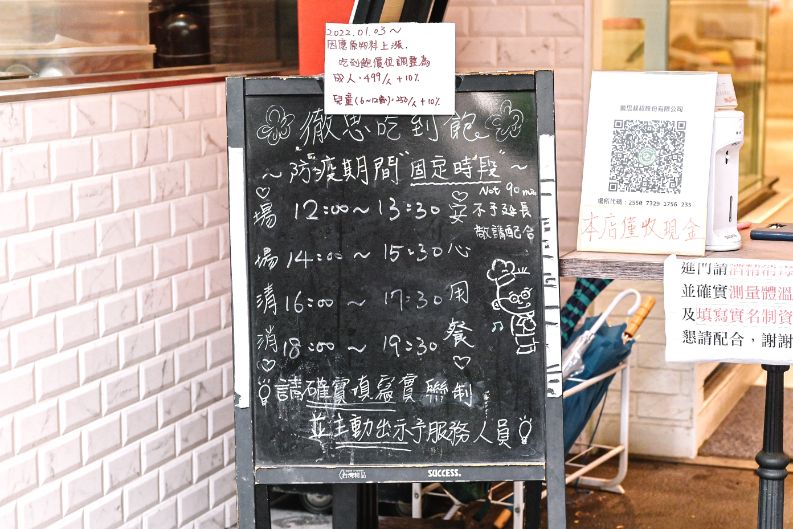 2022.01.03～
因應原物料上漲,
吃到飽價位調整為
成人・499/人+10%
兒童(6~12歲)・250/人+10%
徹思吃到飽
～防疫期間"固定時段"～
Net 90 min
不予延長
敬請配合
場場清消
12:00～13:30
14:00～15:30
16:00～17:30
18:00～19:30
安心用餐
請確實填寫實聯制
並主動出示予服務人員
SUCCESS.
徹思叔叔股份有限公司
場所代碼：2550 7729 2756 235
本店僅收現金
進門請酒精消
並確實測量體溫
及填寫實名制資
懇請配合，謝謝